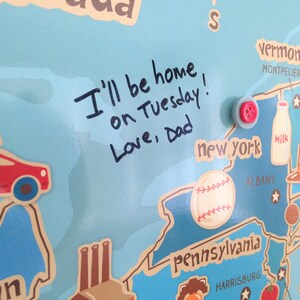 ada
S
I'll be home
on Tuesday!
Love, Dad
vermont
MONTPELIER
MILK
new york
ALBANY
pennsylvania
HARRISBURG
n